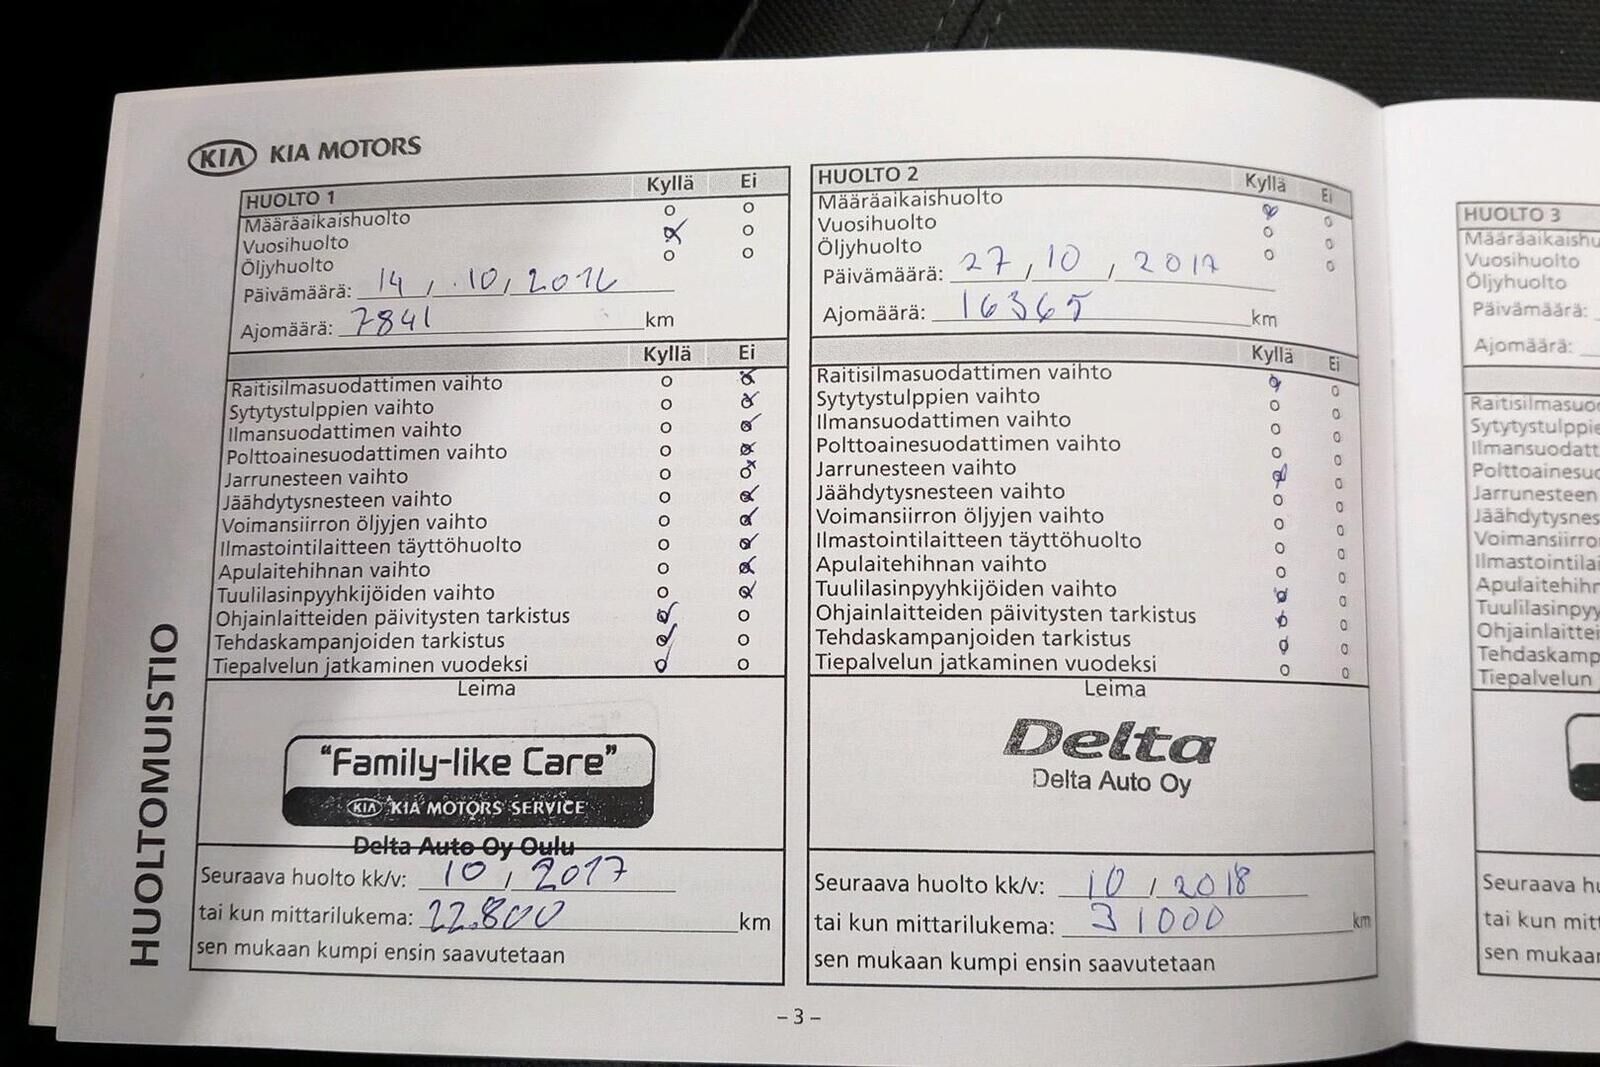 KIA KIA MOTORS
HUOLTO 1 Kyllä Ei
Määräaikaishuolto o o
Vuosihuolto x o
Öljyhuolto o o
Päivämäärä: 14, .10, 2016
Ajomäärä: 7841 km
Kyllä Ei
Raitisilmasuodattimen vaihto o x
Sytytystulppien vaihto o x
Ilmansuodattimen vaihto o x
Polttoainesuodattimen vaihto o x
Jarrunesteen vaihto o x
Jäähdytysnesteen vaihto o x
Voimansiirron öljyjen vaihto o x
Ilmastointilaitteen täyttöhuolto o x
Apulaitehihnan vaihto o x
Tuulilasinpyyhkijöiden vaihto o x
Ohjainlaitteiden päivitysten tarkistus x o
Tehdaskampanjoiden tarkistus x o
Tiepalvelun jatkaminen vuodeksi x o
Leima
"Family-like Care"
KIA KIA MOTORS SERVICE
Delta Auto Oy Oulu
Seuraava huolto kk/v: 10, 2017
tai kun mittarilukema: 22.800 km
sen mukaan kumpi ensin saavutetaan
HUOLTO 2 Kyllä Ei
Määräaikaishuolto x o
Vuosihuolto o o
Öljyhuolto o o
Päivämäärä: 27, 10, 2017
Ajomäärä: 16365 km
Kyllä Ei
Raitisilmasuodattimen vaihto x o
Sytytystulppien vaihto o o
Ilmansuodattimen vaihto o o
Polttoainesuodattimen vaihto o o
Jarrunesteen vaihto x o
Jäähdytysnesteen vaihto o o
Voimansiirron öljyjen vaihto o o
Ilmastointilaitteen täyttöhuolto o o
Apulaitehihnan vaihto o o
Tuulilasinpyyhkijöiden vaihto x o
Ohjainlaitteiden päivitysten tarkistus x o
Tehdaskampanjoiden tarkistus x o
Tiepalvelun jatkaminen vuodeksi o o
Leima
Delta
Delta Auto Oy
Seuraava huolto kk/v: 10, 2018
tai kun mittarilukema: 31000 km
sen mukaan kumpi ensin saavutetaan
HUOLTOMUISTIO
– 3 –
HUOLTO 3
Määräaikaishu
Vuosihuolto
Öljyhuolto
Päivämäärä:
Ajomäärä:
Raitisilmasuo
Sytytystulppie
Ilmansuodatt
Polttoainesuo
Jarrunesteen
Jäähdytysnes
Voimansiirro
Ilmastointilai
Apulaitehihn
Tuulilasinpyy
Ohjainlaittei
Tehdaskamp
Tiepalvelun
Seuraava hu
tai kun mitt
sen mukaan